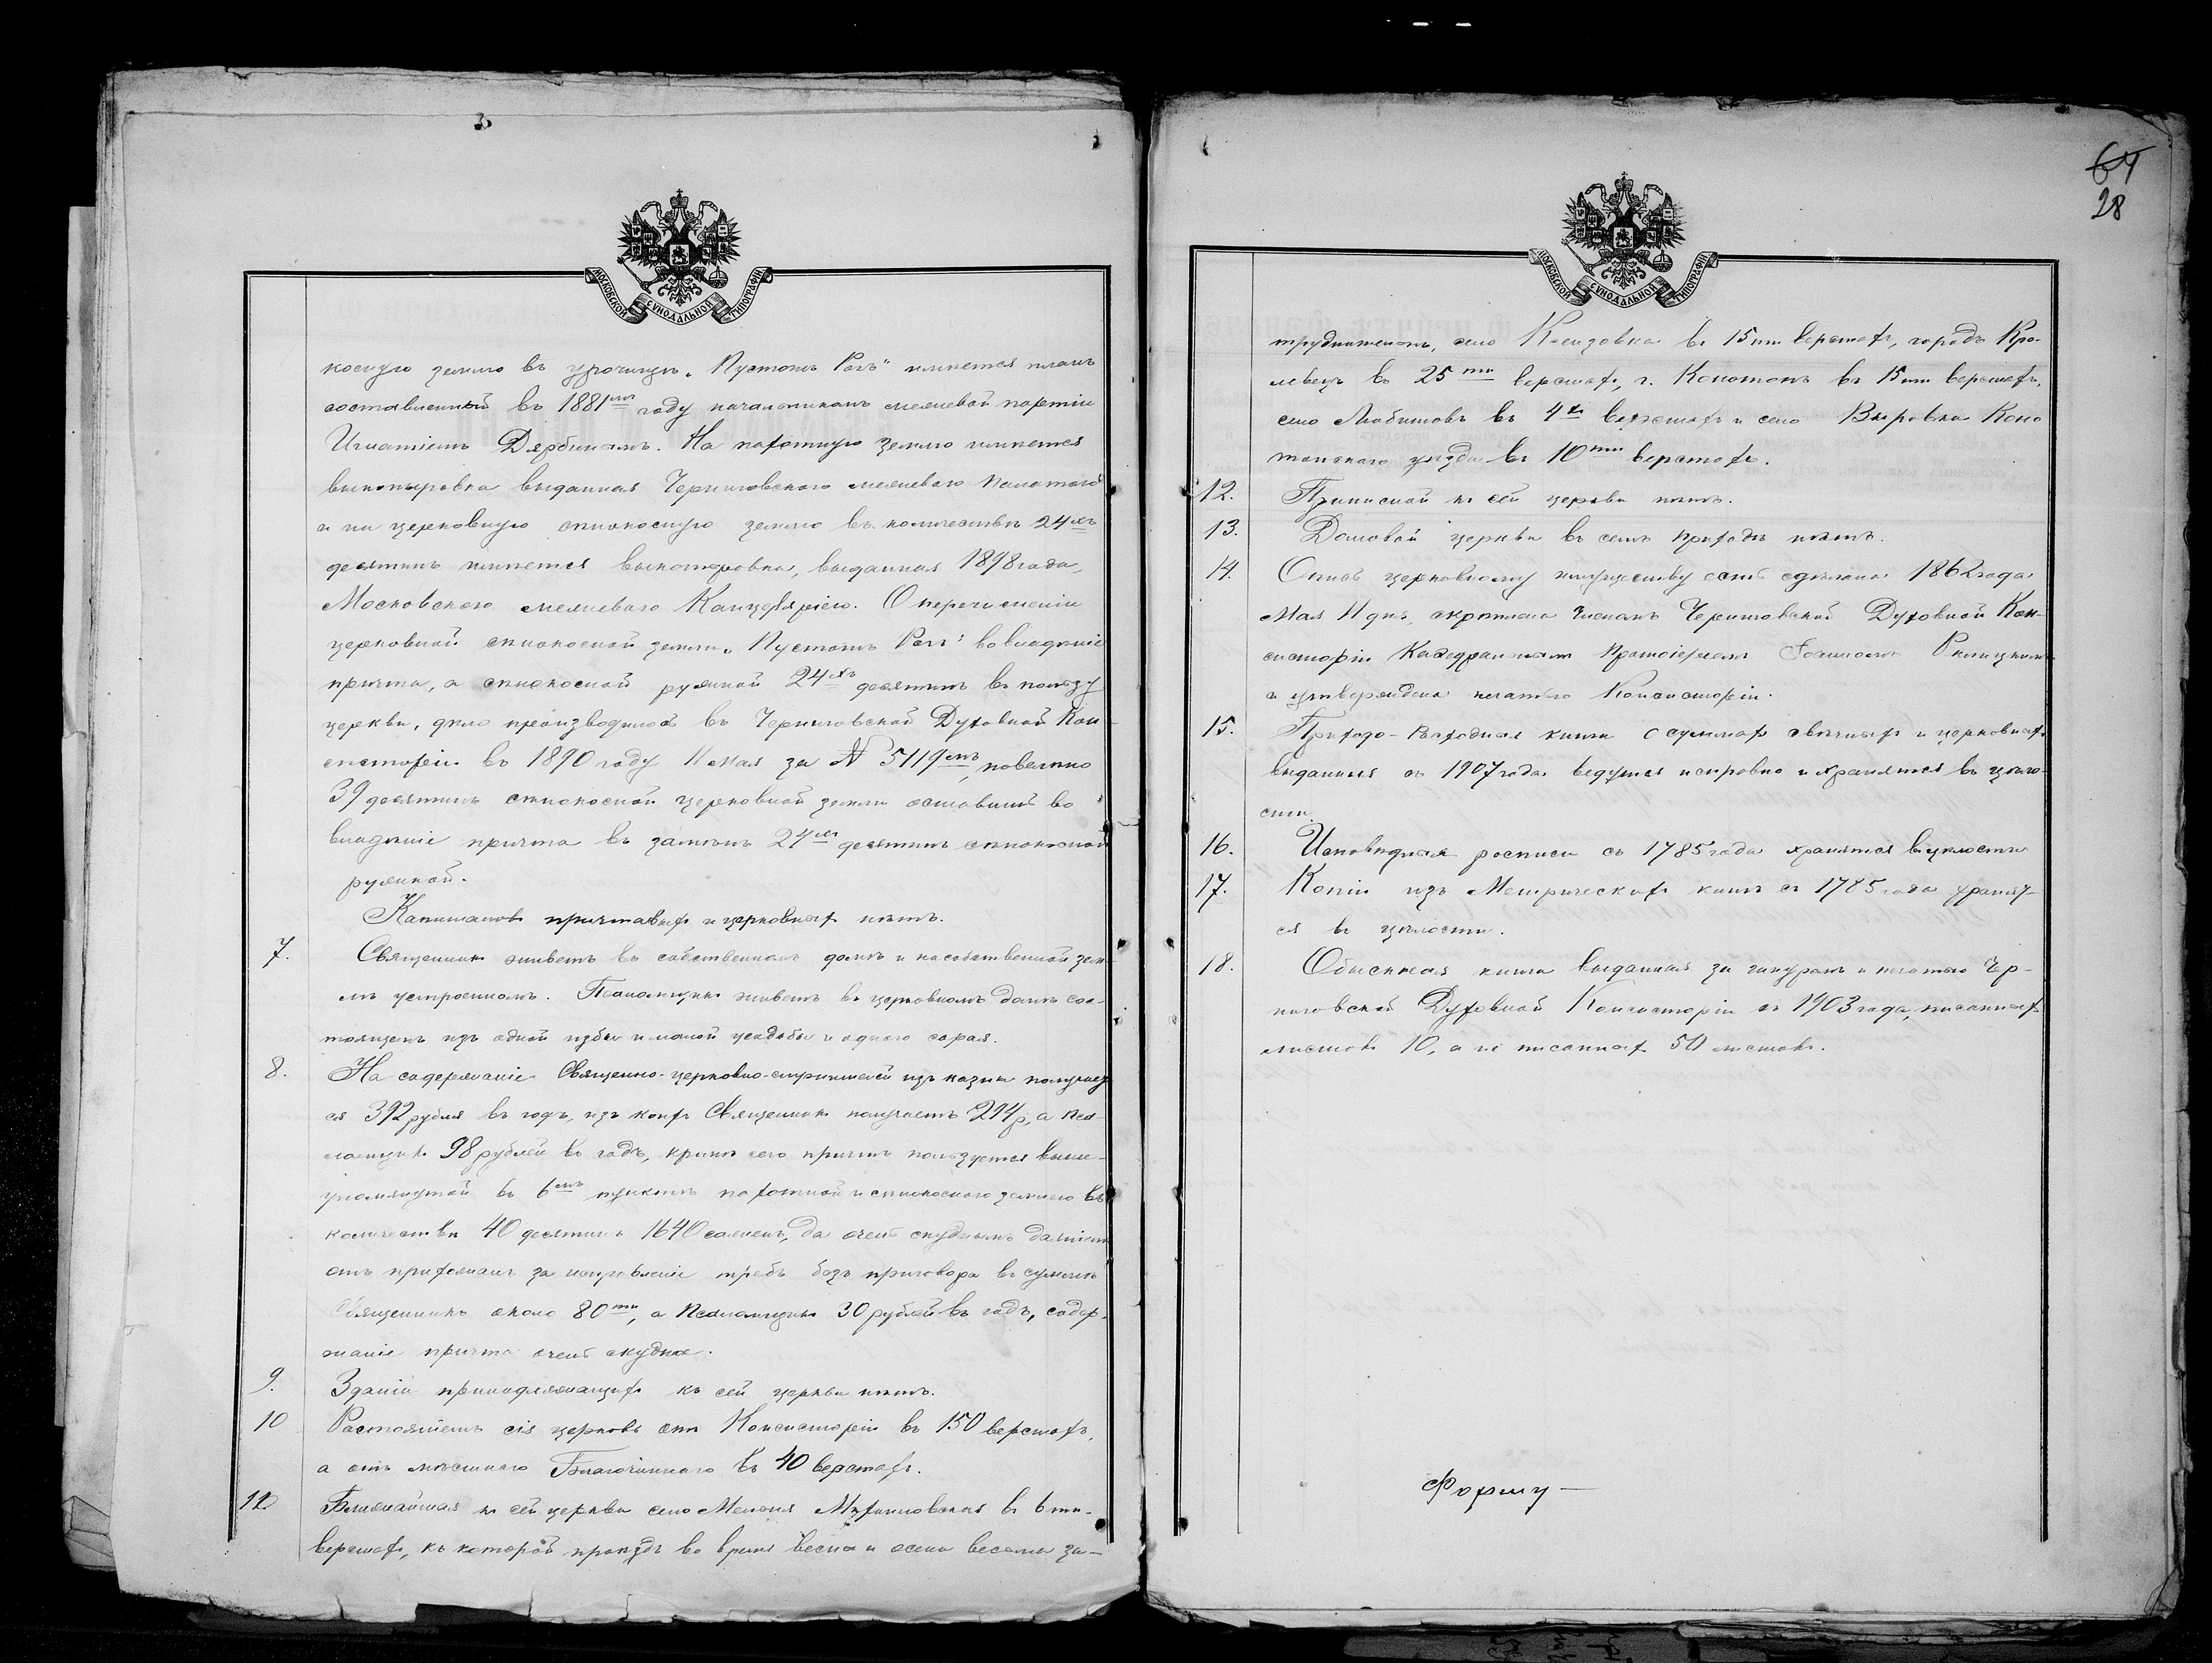 64
28
МОСКОВСКОЙ СѴНОДАЛЬНОЙ ТИПОГРАФІИ
косную землю въ урочищѣ „Пустомъ Рогѣ" имѣется планъ
составленный въ 1881 году начальникомъ межевой партіи
Игнатіемъ Дярбинымъ. На пахотную землю имѣется
выкопыровка выданная Черниговскою межевою палатою
и на церковную сѣнокосную землю въ количествѣ 24хъ
десятинъ имѣется выкопировка, выданная 1898 года,
Московскою межевою Канцеляріею. О перечисленіи
церковной сѣнокосной земли „Пустомъ Рогѣ" во владѣніе
причта, а сѣнокосной ружной 24хъ десятинъ въ пользу
церкви, дѣло производилось въ Черниговской Духовной Кон-
систоріи въ 1890 году 11 мая за № 5119мъ, повелѣно
39 десятинъ сѣнокосной церковной земли оставить во
владѣніе причта въ замѣнъ 24хъ десятинъ сѣнокосной
ружной.
Капиталовъ причтовыхъ и церковныхъ нѣтъ.
7. Священникъ живетъ въ собственномъ домѣ и на собственной зем-
лѣ устроенномъ. Псаломщикъ живетъ въ церковномъ домѣ сос-
тоящемъ изъ одной избы и малой усадьбы и одного сарая.
8. На содержаніе Священно-церковно-служителей изъ казны получает-
ся 392 рубля въ годъ, изъ коихъ Священникъ получаетъ 294 р, а Пса-
ломщикъ 98 рублей въ годъ, кромѣ сего причтъ пользуется выше-
упомянутой въ 6мъ пунктѣ пахотной и сѣнокосною землею въ
количествѣ 40 десятинъ 1640 сажень, да очень скуднымъ даяніемъ
отъ прихожанъ за исправленіе требъ безъ приговора въ суммѣ
Священникъ около 80ти, а Псаломщикъ 30 рублей въ годъ, содер-
жаніе причта очень скудное.
9. Зданій принадлежащихъ къ сей церкви нѣтъ.
10 Растояніемъ сія церковь отъ Консисторіи въ 150 верстахъ,
а отъ мѣстнаго Благочиннаго въ 40 верстахъ.
11 Ближайшая къ сей церкви село Меленя въ 6ти
верстахъ, къ которой проѣздъ во время весны и осени весьма за-
МОСКОВСКОЙ СѴНОДАЛЬНОЙ ТИПОГРАФІИ
труднителенъ, село въ 15ти верстахъ, городъ Кро-
левецъ въ 25ти верстахъ, г. Конотопъ въ 15ти верстахъ,
село Любитовъ въ 4х верстахъ и село Вировка Коно
топскаго уѣзда въ 10ти верстахъ.
12. Приписной къ сей церкви нѣтъ.
13. Домовой церкви въ семъ приходѣ нѣтъ.
14. Опись церковному имуществу есть сдѣлана 1862 года
Мая 11 дня, скрѣплена Членомъ Черниговской Духовной Кон-
систоріи Каѳедральнымъ Протоіереемъ Іоанномъ
и утверждена печатью Консисторіи.
15. Приходо-Расходныя книги о суммахъ свѣчныхъ и церковныхъ
выданныя съ 1907 года ведутся исправно и хранятся въ цѣло-
сти.
16. Исповѣдныя росписи съ 1785 года хранятся въ цѣлости
17. Копіи изъ Метрическихъ книгъ съ 1785 года хранят-
ся въ цѣлости.
18. Обыскная книга выданная за шнуромъ и печатью Чер-
ниговской Духовной Консисторіи съ 1903 года, писанныхъ
листовъ 10, а не писанныхъ 50 листовъ.
Форму—